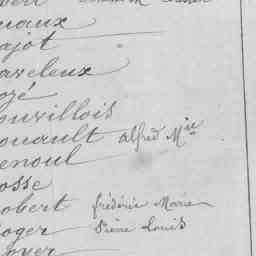 uaux
ajot
aveleux
ozé
ouvillois
ouault Alfred M^ie
enoul
osse
obert frédéric Marie
oger Pierre Louis
oyer